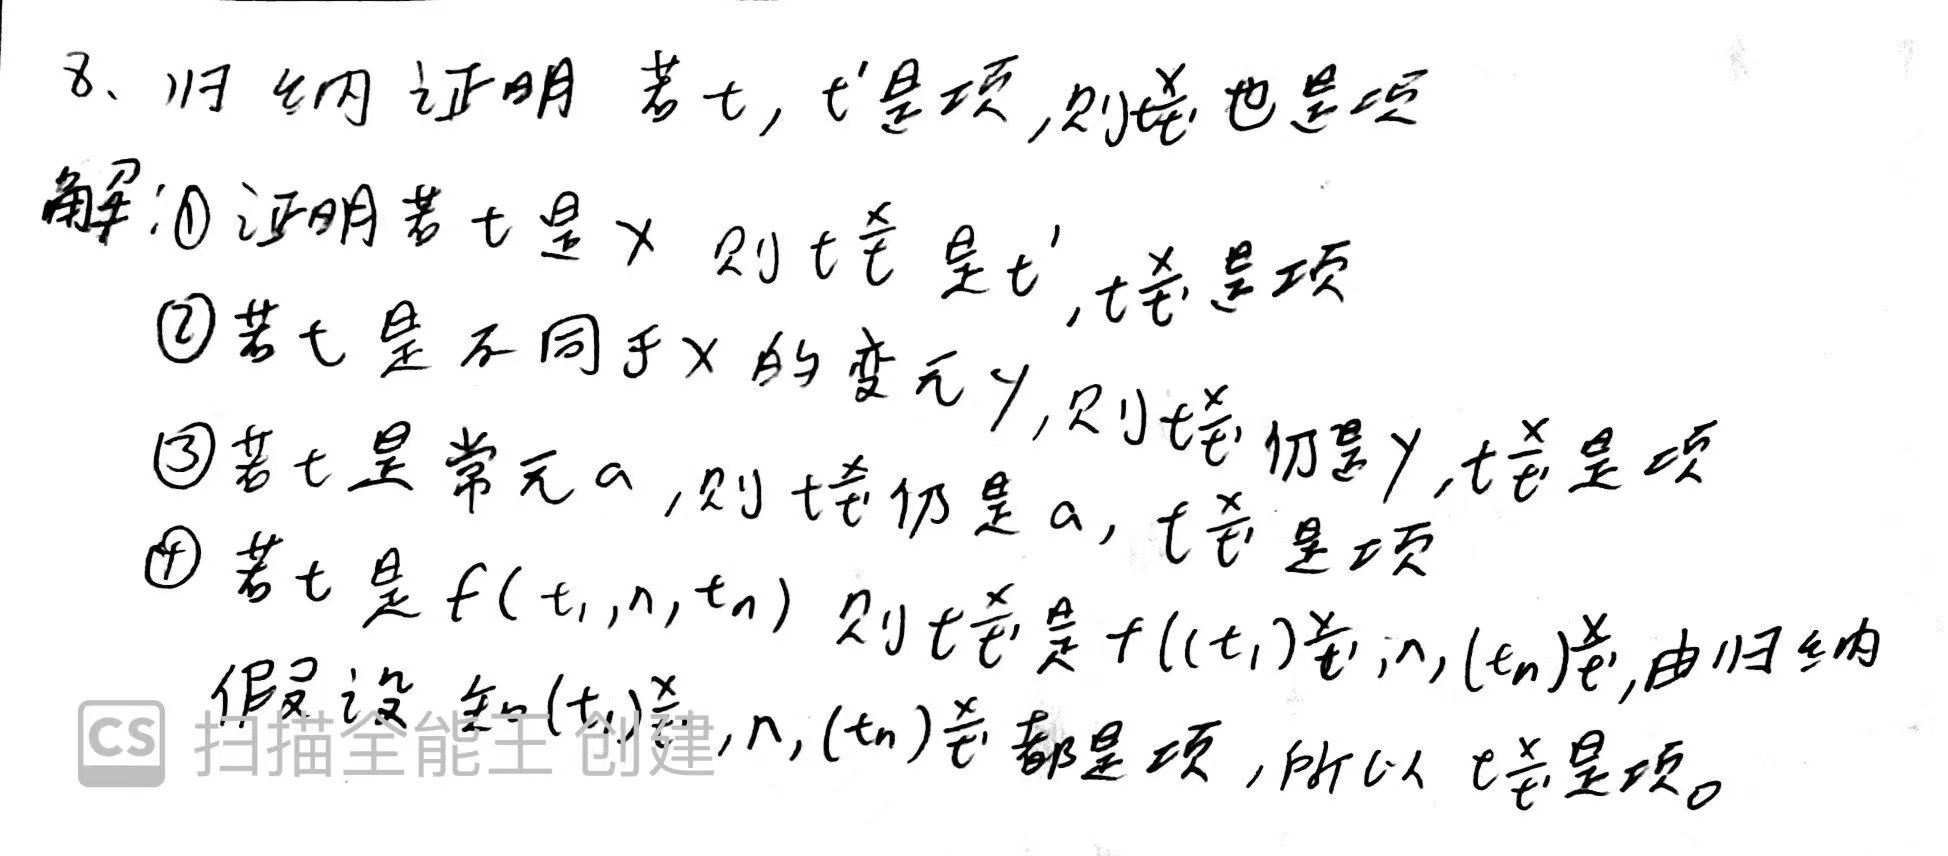 8、归纳证明 若t, t'是项,则t x/t' 也是项
解:①证明若t是x 则t x/t 是t', t x/t' 是项
②若t是不同于x的变元y, 则t x/t' 仍是y, t x/t' 是项
③若t是常元a, 则t x/t' 仍是a, t x/t' 是项
④若t是f(t₁,n,tn) 则t x/t' 是f((t₁) x/t', n, (tn) x/t', 由归纳
假设知(t₁) x/t', n, (tn) x/t' 都是项, 所以 t x/t' 是项。
CS 扫描全能王 创建